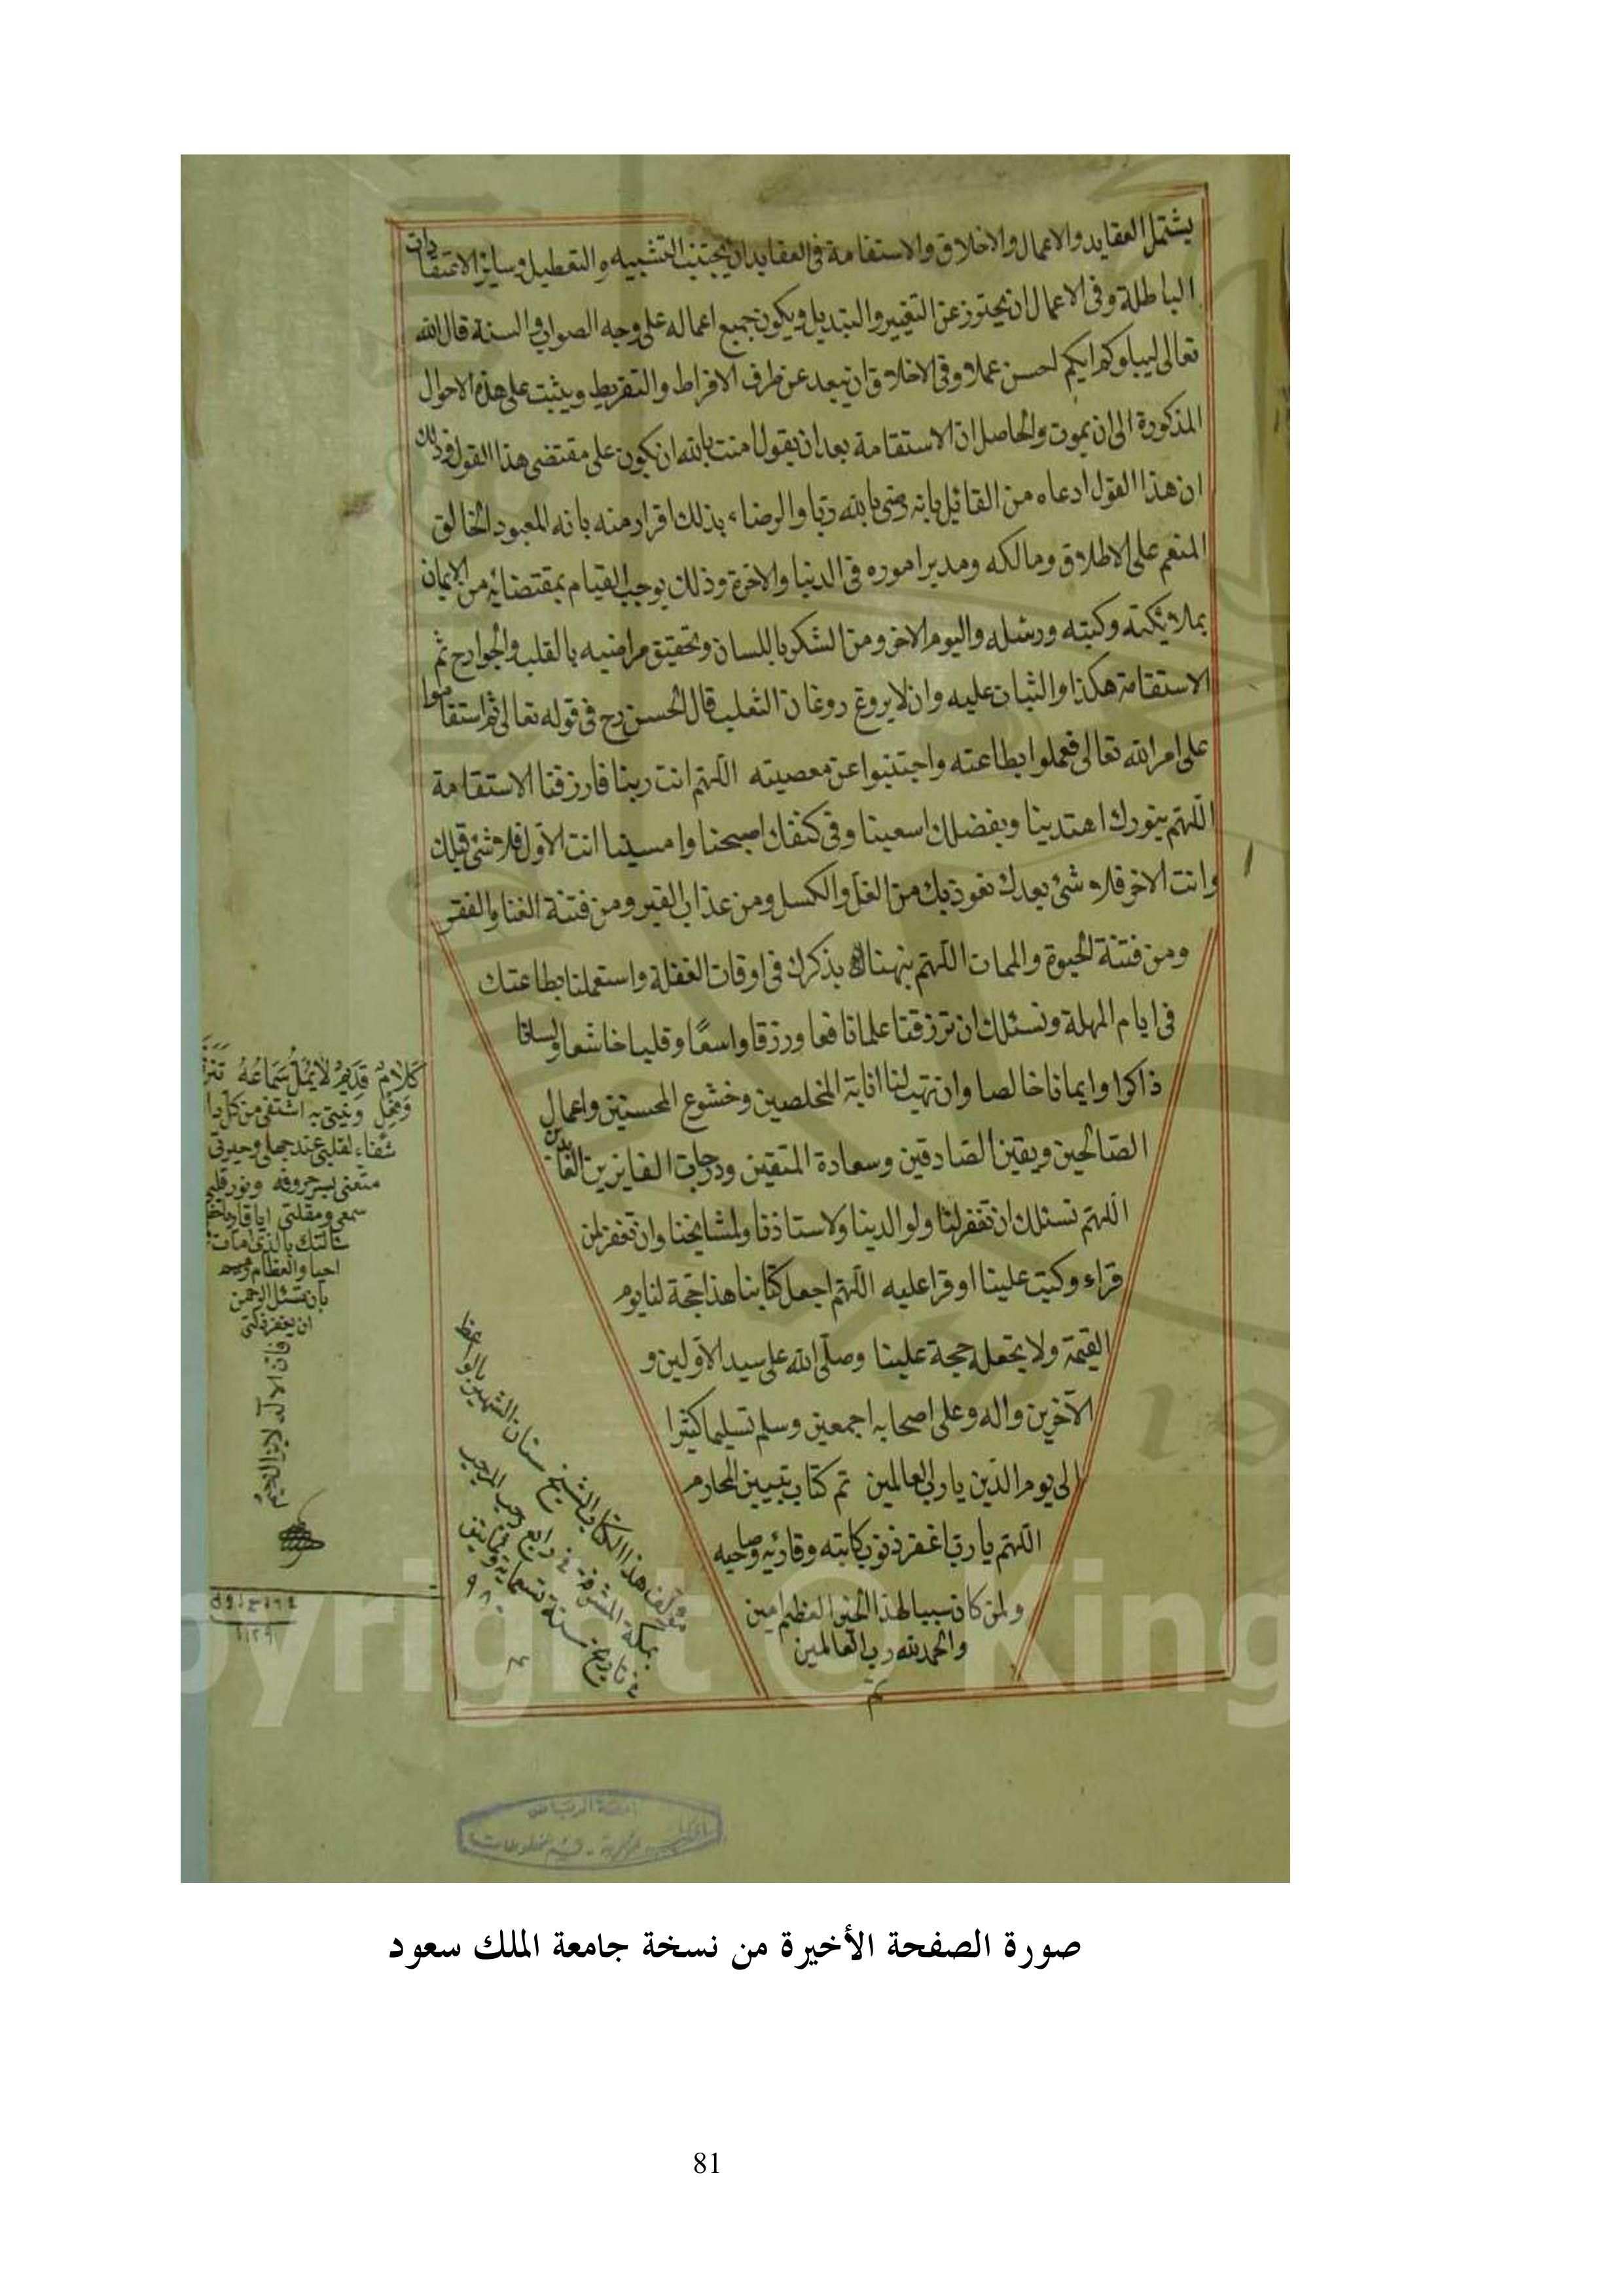 يشتمل العقايد والاعمال والاخلاق والاستقامة فى العقايد ان يجتنب التشبيه والتعطيل وساير الاعتقادات
الباطلة وفى الاعمال ان يحترز عن التغيير والتبديل ويكون جميع اعماله على وجه الصواب والسنة قال الله
تعالى ليبلوكم ايكم احسن عملا وفى الاخلاق ان يبعد عن طرف الافراط والتفريط ويثبت على هذه الاحوال
المذكورة الى ان يموت والحاصل ان الاستقامة بعد ان يقول امنت بالله ان يكون على مقتضى هذا القول وذلك
ان هذا القول ادعاء من القائل بانه رضى بالله ربا والرضاء بذلك اقرار منه بانه المعبود الخالق
المنعم على الاطلاق ومالكه ومدبر اموره فى الدنيا والاخرة وذلك يوجب القيام بمقتضائه من الايمان
بملائكته وكتبه ورسله واليوم الاخر ومن الشكر باللسان وتحقيق مراضيه بالقلب والجوارح ثم
الاستقامة هكذا والثبات عليه وان لا يروغ روغان الثعلب قال الحسن رح فى قوله تعالى ثم استقاموا
على امر الله تعالى فعملوا بطاعته واجتنبوا عن معصيته اللهم انت ربنا فارزقنا الاستقامة
اللهم بنورك اهتدينا وبفضلك وفى كنفك اصبحنا وامسينا انت الاول فلا شئ قبلك
وانت الاخر فلا شئ بعدك نعوذ بك من والكسل ومن عذاب القبر ومن فتنة الغنا والفقر
ومن فتنة الحيوة والممات اللهم نبهنا بذكرك فى اوقات الغفلة واستعملنا بطاعتك
فى ايام المهلة ونسئلك ان ترزقنا علما نافعا ورزقا واسعًا وقلبا خاشعا ولسانا
ذاكرا وايمانا خالصا وان تهب لنا انابة المخلصين وخشوع المحسنين واعمال
الصّالحين ويقين الصّادقين وسعادة المتقين ودرجات الفايزين
اللهم نسئلك ان تغفر لنا ولوالدينا ولاستاذنا ولمشايخنا وان تغفر لمن
قراء وكتب علينا او قرا عليه اللهم اجعل كتابنا هذا حجة لنا يوم
القيمة ولا تجعله حجة علينا وصلّى الله على سيد الاولين و
الآخرين واله وعلى اصحابه اجمعين وسلم تسليما كثيرا
الى يوم الدّين يا رب العالمين تم كتاب تبيين المحارم
اللهم يا رب اغفر ذنوب كاتبه وقارئه وصاحبه
ولمن كان سببا لهذا الخير العظيم امين
والحمد لله رب العالمين
تم
مؤلف هذا الكتاب الشيخ سنان الشهير بالواعظ
بمكة المشرفة فى رابع رجب المرجب
فى تاريخ سنة تسعماية وثمانين
٩٨٠
كَلَامٌ قَدِيمٌ لَا يُمَلُّ سَمَاعُهُ
به اشتفى من كل
شفاء لقلبى عند جهلى وحيرتى
متعنى بسر حروفه ونور قلبى
سمعى ومقلتى
بالذى امات
احيا والعظام
ان يغفر زلتى
صورة الصفحة الأخيرة من نسخة جامعة الملك سعود
81
pyright © King